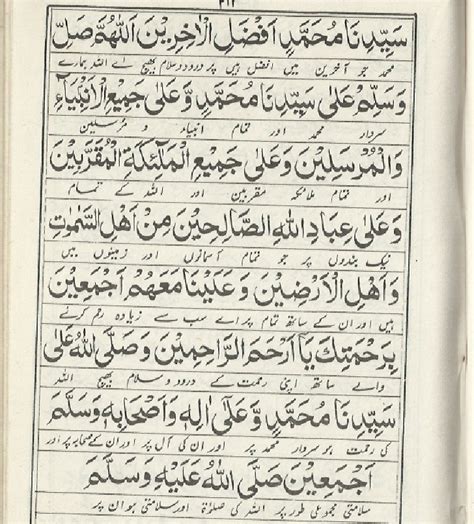 ٤١٢
سَيِّدِنَا مُحَمَّدٍ اَفْضَلِ الْاٰخِرِيْنَ اَللّٰهُمَّ صَلِّ
محمد جو آخرین میں افضل ہیں پر درود و سلام بھیج اے اللہ ہمارے
وَسَلِّمْ عَلٰى سَيِّدِنَا مُحَمَّدٍ وَّعَلٰى جَمِيْعِ الْاَنْبِيَآءِ
سردار محمد اور تمام انبیاء و مرسلین
وَالْمُرْسَلِيْنَ وَعَلٰى جَمِيْعِ الْمَلٰٓئِكَةِ الْمُقَرَّبِيْنَ
اور تمام ملائکہ مقربین اور اللہ کے تمام
وَعَلٰى عِبَادِ اللّٰهِ الصَّالِحِيْنَ مِنْ اَهْلِ السَّمٰوٰتِ
نیک بندوں پر جو تمام آسمانوں اور زمینوں میں
وَاَهْلِ الْاَرَضِيْنَ وَعَلَيْنَا مَعَهُمْ اَجْمَعِيْنَ
ہیں اور ان کے ساتھ تمام پر اے سب سے زیادہ رحم کرنے
بِرَحْمَتِكَ يَآ اَرْحَمَ الرَّاحِمِيْنَ وَصَلَّى اللّٰهُ عَلٰى
والے ساتھ اپنی رحمت کے درود و سلام بھیج اللہ
سَيِّدِنَا مُحَمَّدٍ وَّعَلٰٓى اٰلِهٖ وَاَصْحَابِهٖ وَسَلَّمَ
کی رحمت ہو سردار محمد پر اور ان کی آل پر اور ان کے صحابہ پر اور
اَجْمَعِيْنَ صَلَّى اللّٰهُ عَلَيْهِ وَسَلَّمَ
سلامتی مجموعی طور پر اللہ کی صلوٰۃ اور سلامتی ہو ان پر